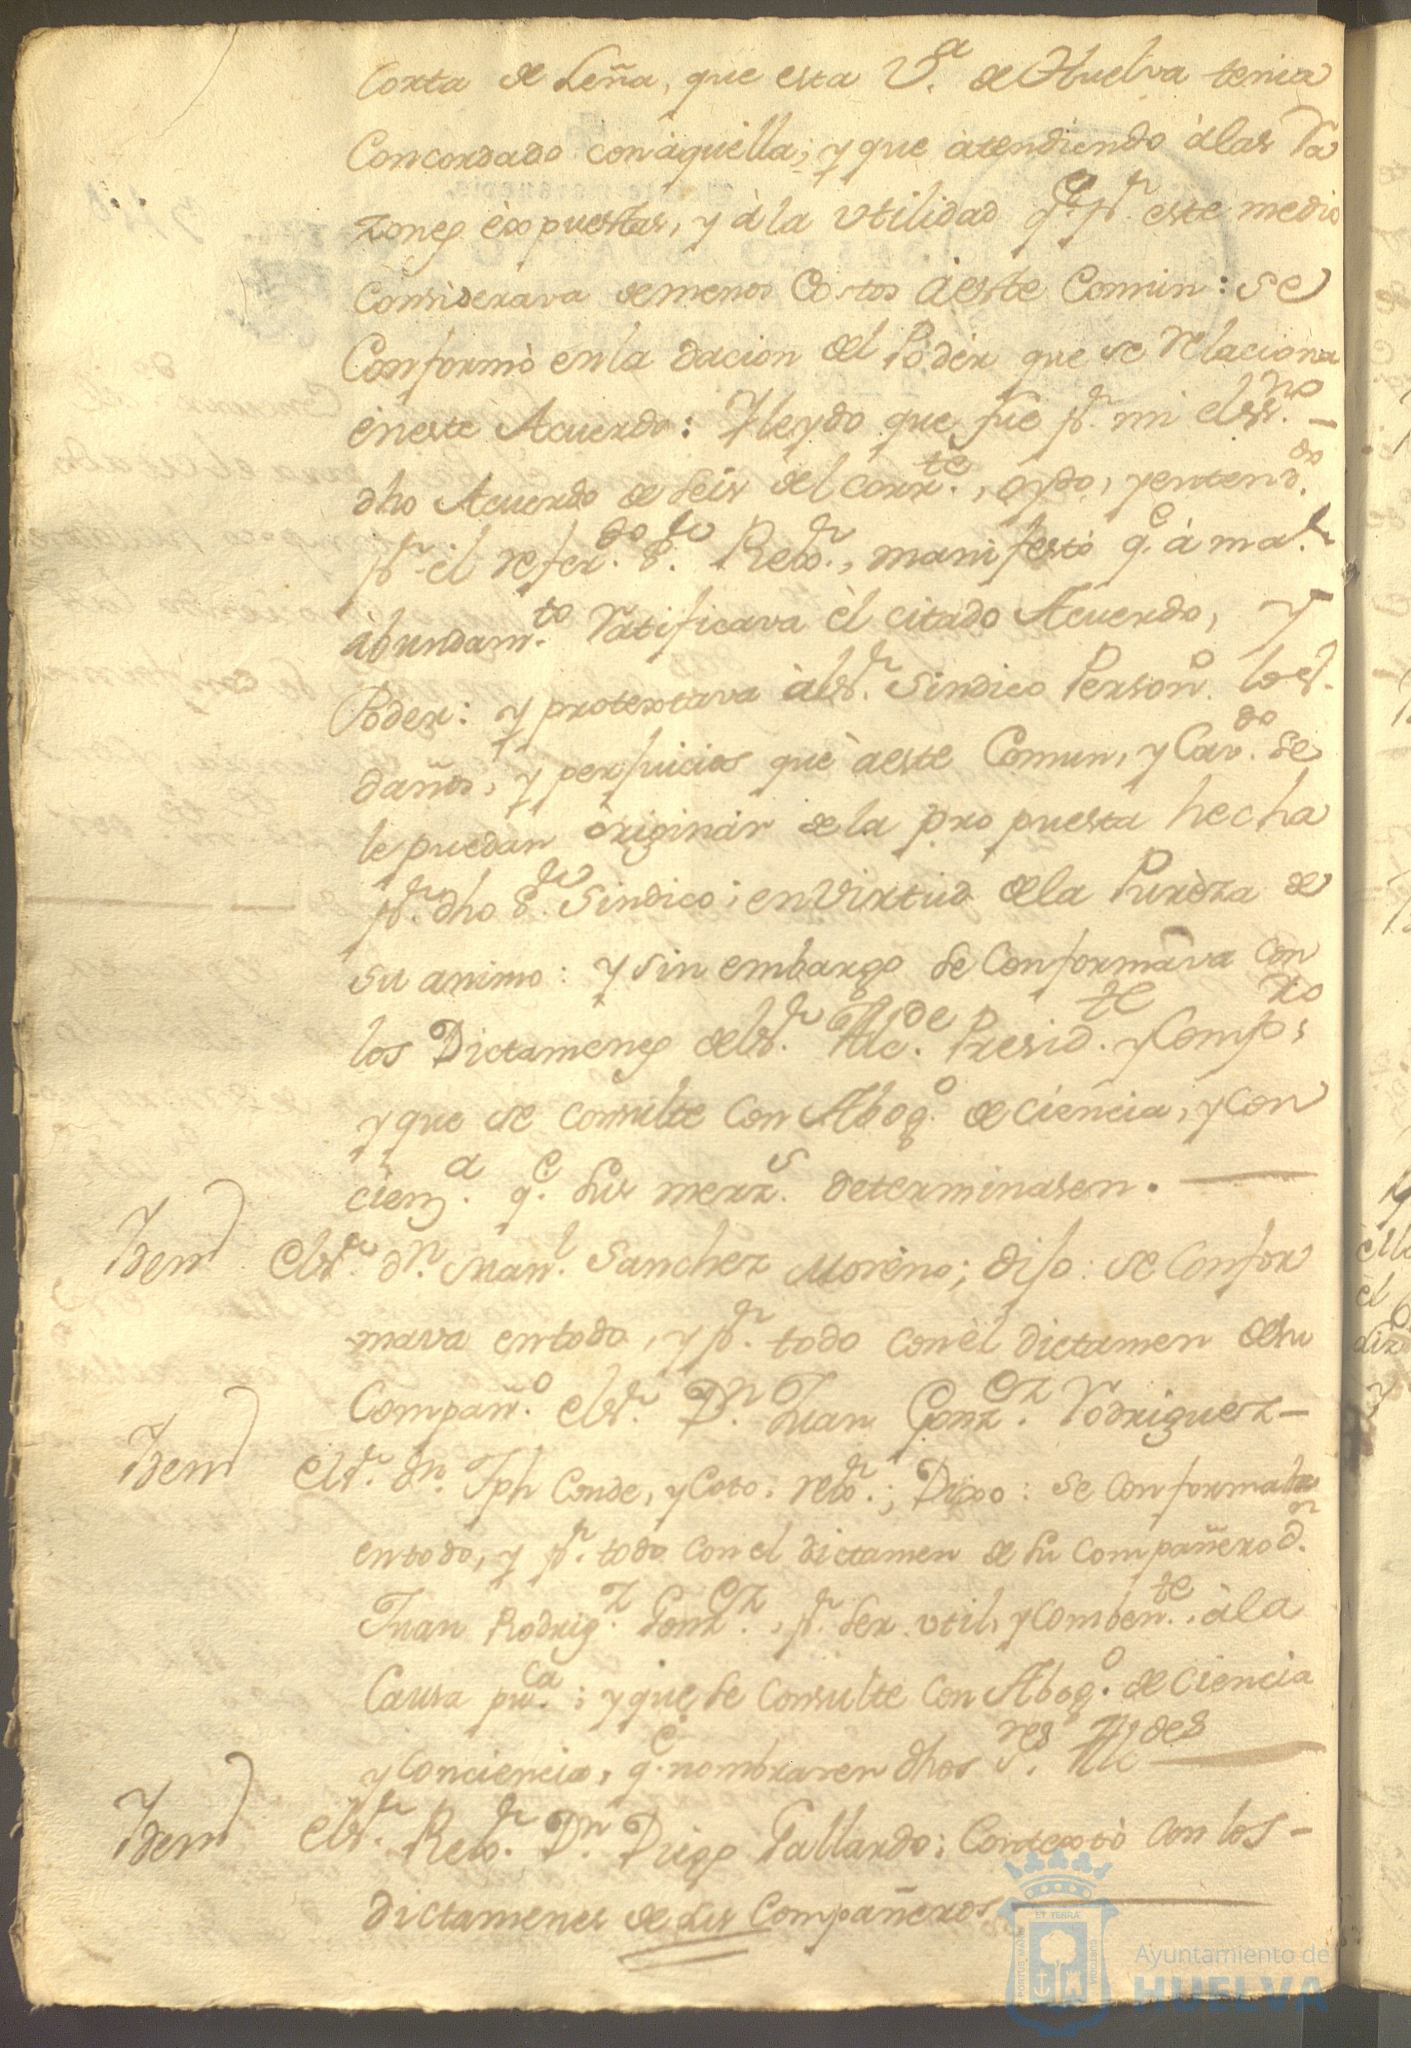 Corta de Leña, que esta V.ª de Huelva tenia
Concordado con àquella; y que àtendiendo àlas Ra
zones èxpuestas, y à la vtilidad q.e p.r este medio
Considerava de menos Costos àeste Comun: se
Conformò en la dacion del Podèr que se relaciona
èneste Acuerdo: Y leydo que fue p.r mi el ss.no
dho Acuerdo de seis del corr.te, oydo, y entend.do
p.r el refer.do s.r Rex.r, manifestò q.e à ma.r
àbundam.to Ratificava èl citado Acuerdo, y
Poder: y protextava àl s.r Sindico Person.o los
daños, y perjuicios què àeste Comun, y Cav.do se
le puedan òriginàr de la propuesta hecha
p.r dho s.r Sindico; en Virtud de la Purèza de
su animo: y sin embargo se Conformàva con
los Dictamenes del s.r Alc.de Presid.te y Comp.ro,
y que se consulte con Abog.o de ciencia, y con
cienz.a q.e sus merz.s determinasen.
Ydem el s.r dn. Man.l Sanchez Moreno; dijo: se Confor
mava en todo, y p.r todo con èl dictamen de su
Compañ.o el s.r Dn. Juan Gonz.ez Rodriguez
Ydem el s.r dn. Jph Conde, y Coto: rex.r; Dixo: se conformaba
en todo, y p.r todo con el dictamen de su compañero dn.
Juan Rodrig.z Gonz.ez, p.r ser vtil, y comben.te, à la
Causa pu.ca; y que se consulte con Abog.o de Ciencia
y Conciencia, q.e nombraren dhos S.res Alc.des
Ydem el s.r Rex.r Dn. Diego Gallardo; Contextò con los
dictamenes de sus Compañeros
Ayuntamiento de
HUELVA